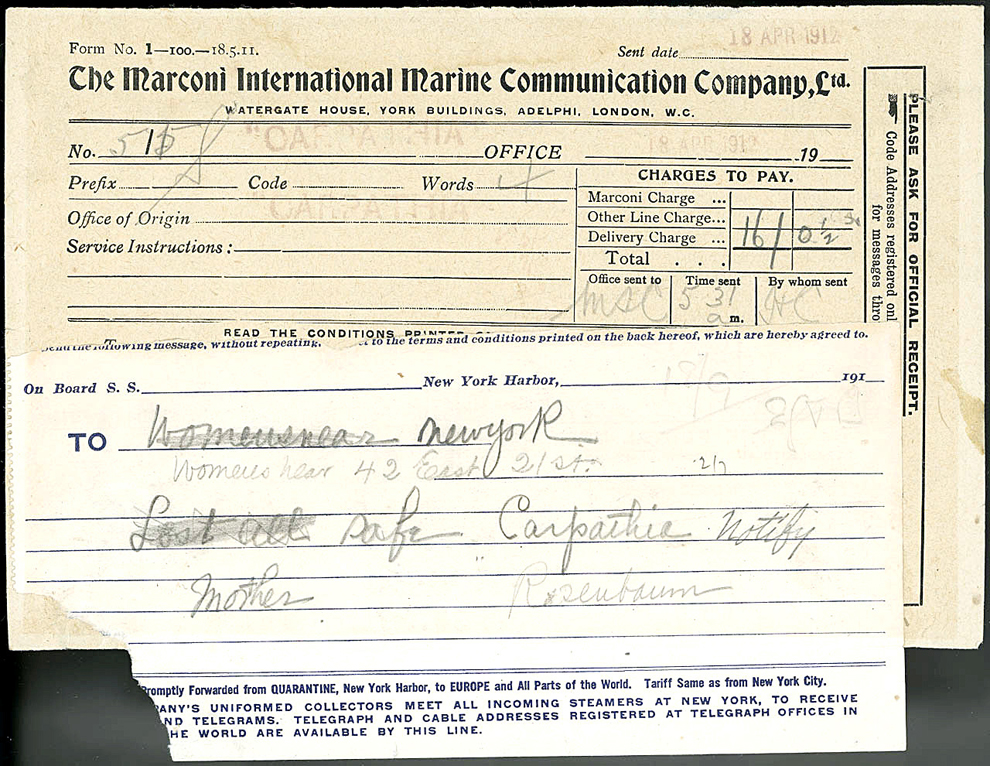 Form No. 1—100.—18.5.11.
Sent date 18 APR 1912
The Marconi International Marine Communication Company, Ltd.
WATERGATE HOUSE, YORK BUILDINGS, ADELPHI, LONDON, W.C.
No. 515 OFFICE 18 APR 1912 19
"CARPATHIA"
Prefix Code Words 4
CARPATHIA
Office of Origin
Service Instructions :
CHARGES TO PAY.
Marconi Charge ...
Other Line Charge...
Delivery Charge ... 16/ 0 ½
Total . . .
Office sent to Time sent By whom sent
MSC 5 31 HC
m.
PLEASE ASK FOR OFFICIAL RECEIPT.
Code Addresses registered onl
for messages thro
READ THE CONDITIONS PRINTED
following message, without repeating, to the terms and conditions printed on the back hereof, which are hereby agreed to.
On Board S. S. New York Harbor, 191
TO Womenswear Newyork
Womens wear 42 East 21 st.
Lost all safe Carpathia Notify
Mother Rosenbaum
Promptly Forwarded from QUARANTINE, New York Harbor, to EUROPE and All Parts of the World. Tariff Same as from New York City.
PANY'S UNIFORMED COLLECTORS MEET ALL INCOMING STEAMERS AT NEW YORK, TO RECEIVE
ND TELEGRAMS. TELEGRAPH AND CABLE ADDRESSES REGISTERED AT TELEGRAPH OFFICES IN
HE WORLD ARE AVAILABLE BY THIS LINE.